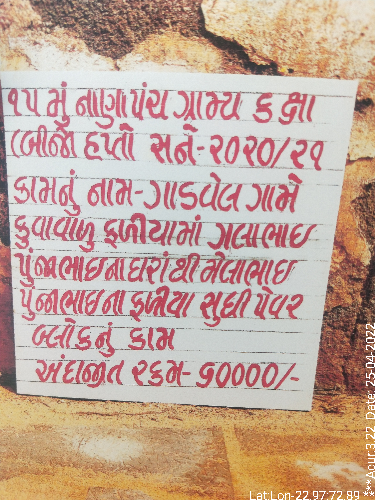 ૧૫ મું નાણા પંચ ગ્રામ્ય કક્ષા
(બીજો હપ્તો સને-૨૦૨૦/૨૧
કામનું નામ-ગાડવેલ ગામે
કુવાવાળુ ફળીયામાં ગલાભાઇ
પુંજાભાઇના ઘરાંથી મેલાભાઇ
પુંજાભાઇના ફળીયા સુધી પેવર
બ્લોકનું કામ
અંદાજીત રકમ-૬૦૦૦૦/-
Lat:Lon-22.97:72.99
***Acur:3.22 Date: 25-04-2022